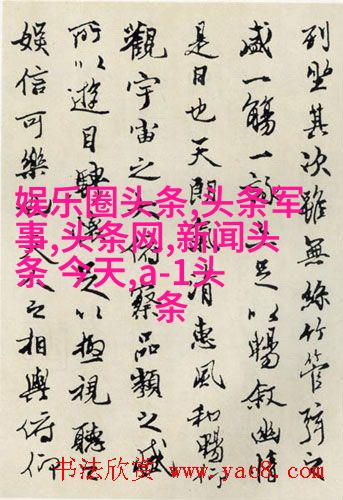 列坐其次雖無絲竹管弦之
盛一觴一詠足以暢叙幽情
是日也天朗氣清惠風和暢仰
觀宇宙之大俯察品類之盛
所以遊目騁懷足以極視聽之
娛信可樂也夫人之相與俯仰
娱乐圈头条,头条军
事,头条网,新闻头
条 今天,a-1头
条
书法欣赏 www.yac8.com